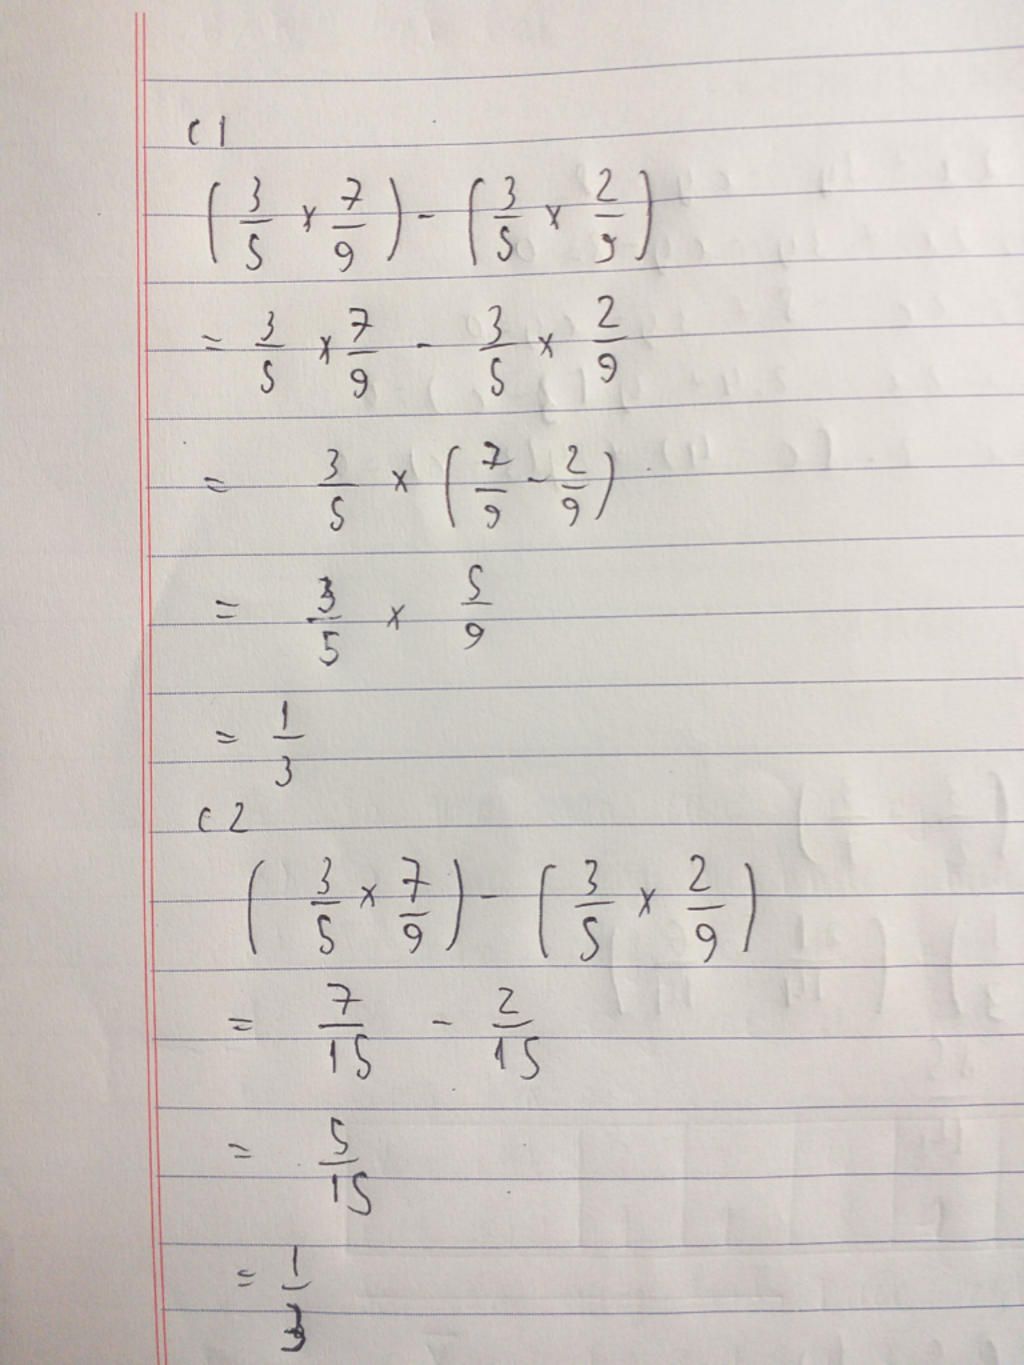 C1
(3/5 × 7/9) - (3/5 × 2/9)
= 3/5 × 7/9 - 3/5 × 2/9
= 3/5 × (7/9 - 2/9)
= 3/5 × 5/9
= 1/3
C2
(3/5 × 7/9) - (3/5 × 2/9)
= 7/15 - 2/15
= 5/15
= 1/3